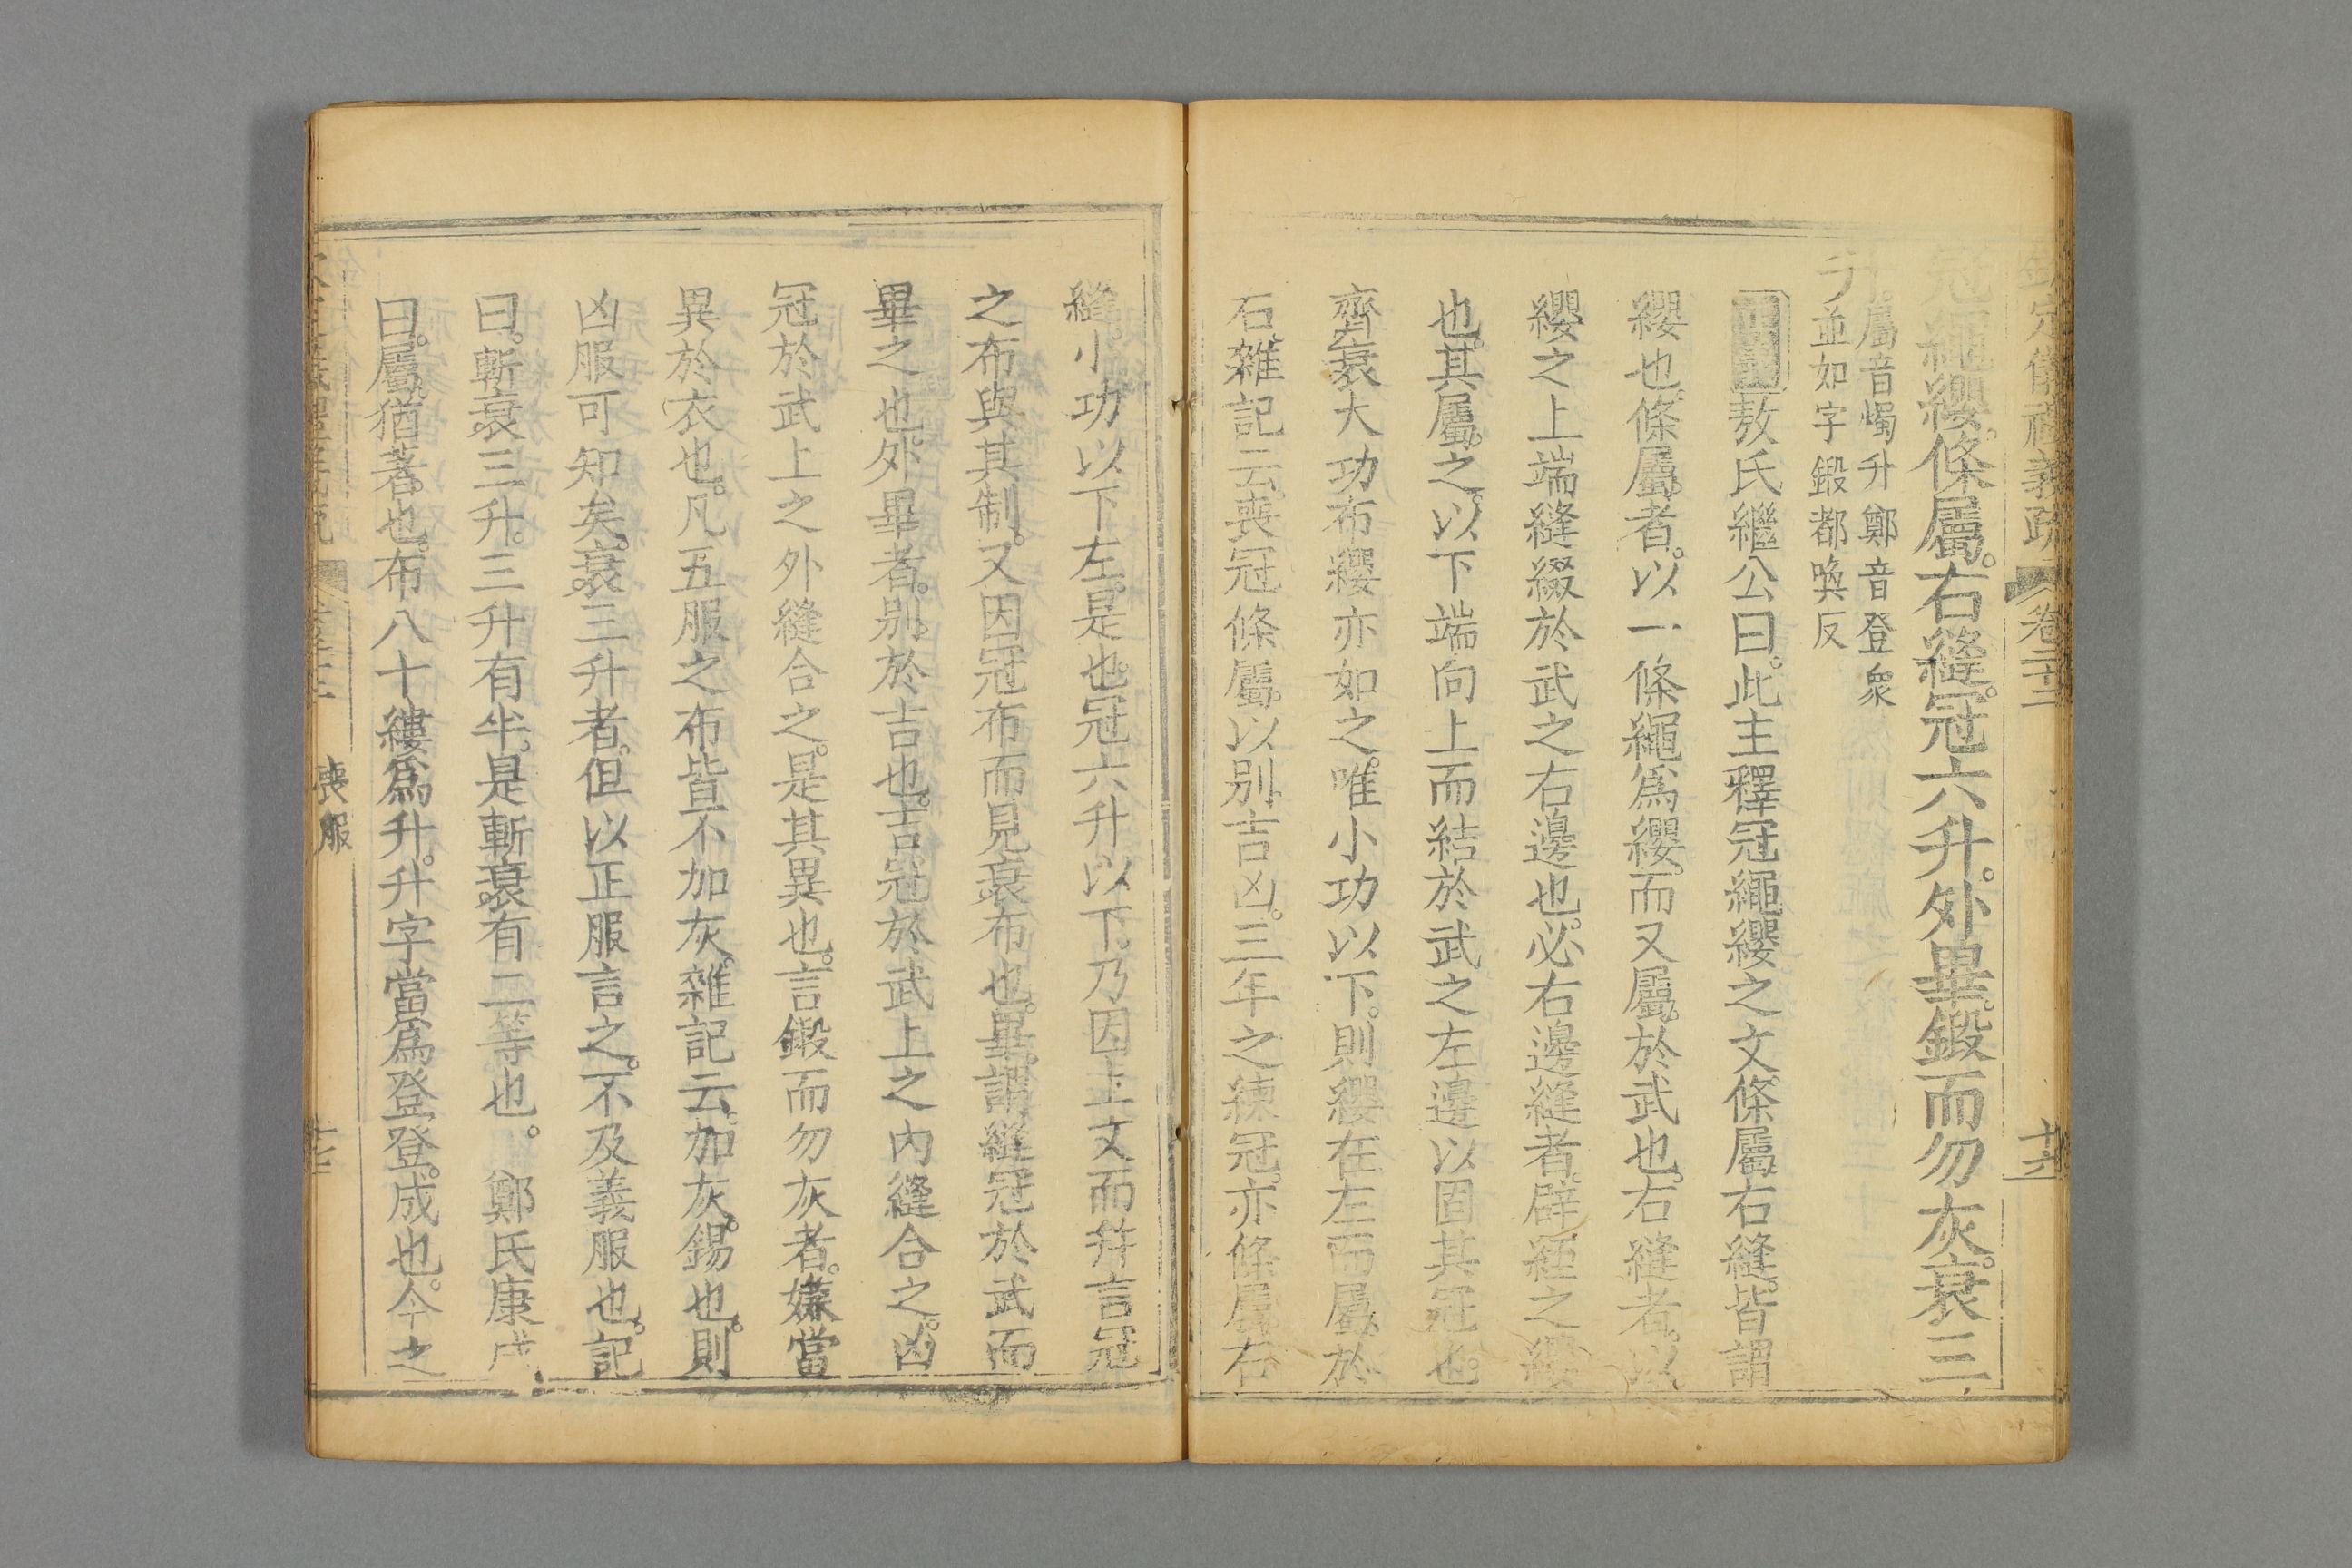 欽定儀禮義疏 卷二十二 十六
冠繩纓條屬右縫冠六升外畢鍛而勿灰衰三
升
屬音燭升鄭音登衆
並如字鍛都喚反
正義敖氏繼公曰此主釋冠繩纓之文條屬右縫皆謂
纓也條屬者以一條繩爲纓而又屬於武也右縫者以
纓之上端縫綴於武之右邊也必右邊縫者辟絰之纓
也其屬之以下端向上而結於武之左邊以固其冠也
齊衰大功布纓亦如之唯小功以下則纓在左而屬於
右雜記云喪冠條屬以别吉凶三年之練冠亦條屬右
縫小功以下左是也冠六升以下乃因上文而幷言冠
之布與其制又因冠布而見衰布也畢謂縫冠於武而
畢之也外畢者别於吉也吉冠於武上之内縫合之凶
冠於武上之外縫合之是其異也言鍛而勿灰者嫌當
異於衣也凡五服之布皆不加灰雜記云加灰錫也則
凶服可知矣衰三升者但以正服言之不及義服也記
曰斬衰三升三升有半是斬衰有二等也。 鄭氏康成
曰屬猶著也布八十縷爲升升字當爲登登成也今之
喪服